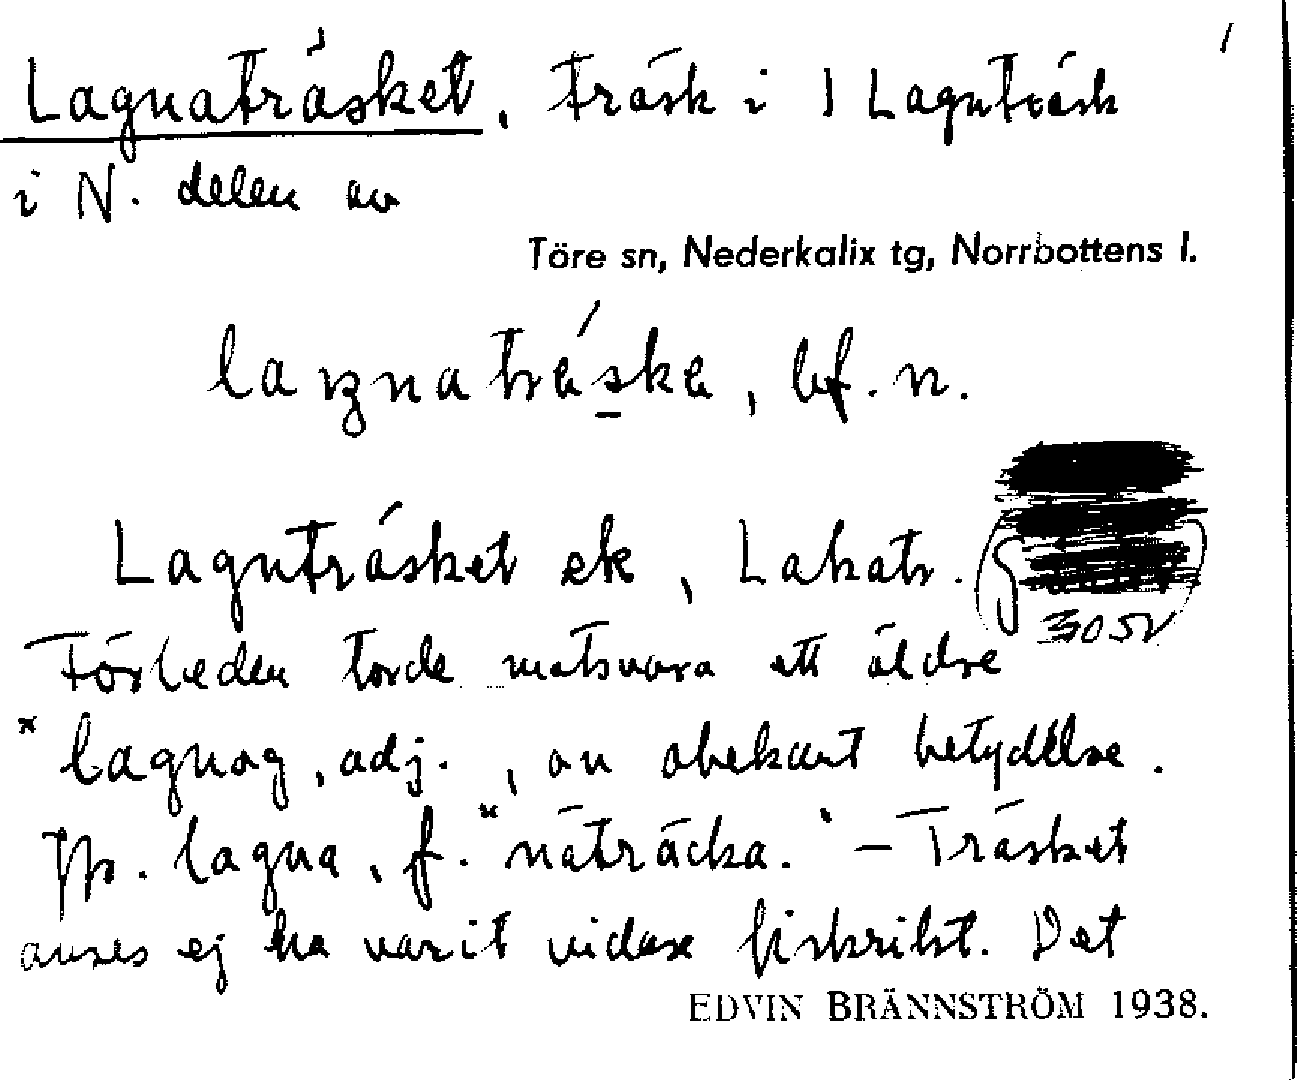 Lagnaträsket, träsk i 1 Lagnträsk
i N. delen av
Töre sn, Nederkalix tg, Norrbottens l.
lagnatræske, bf. n.
Lagnträsket ek, Lakatr. (J
3052
Förleden torde motsvara ett äldre
*lagnog, adj., av obekant betydelse.
Jfr. lagna, f. "näträcka." – Träsket
anses ej ha varit vidare fiskrikt. Det
EDVIN BRÄNNSTRÖM 1938.